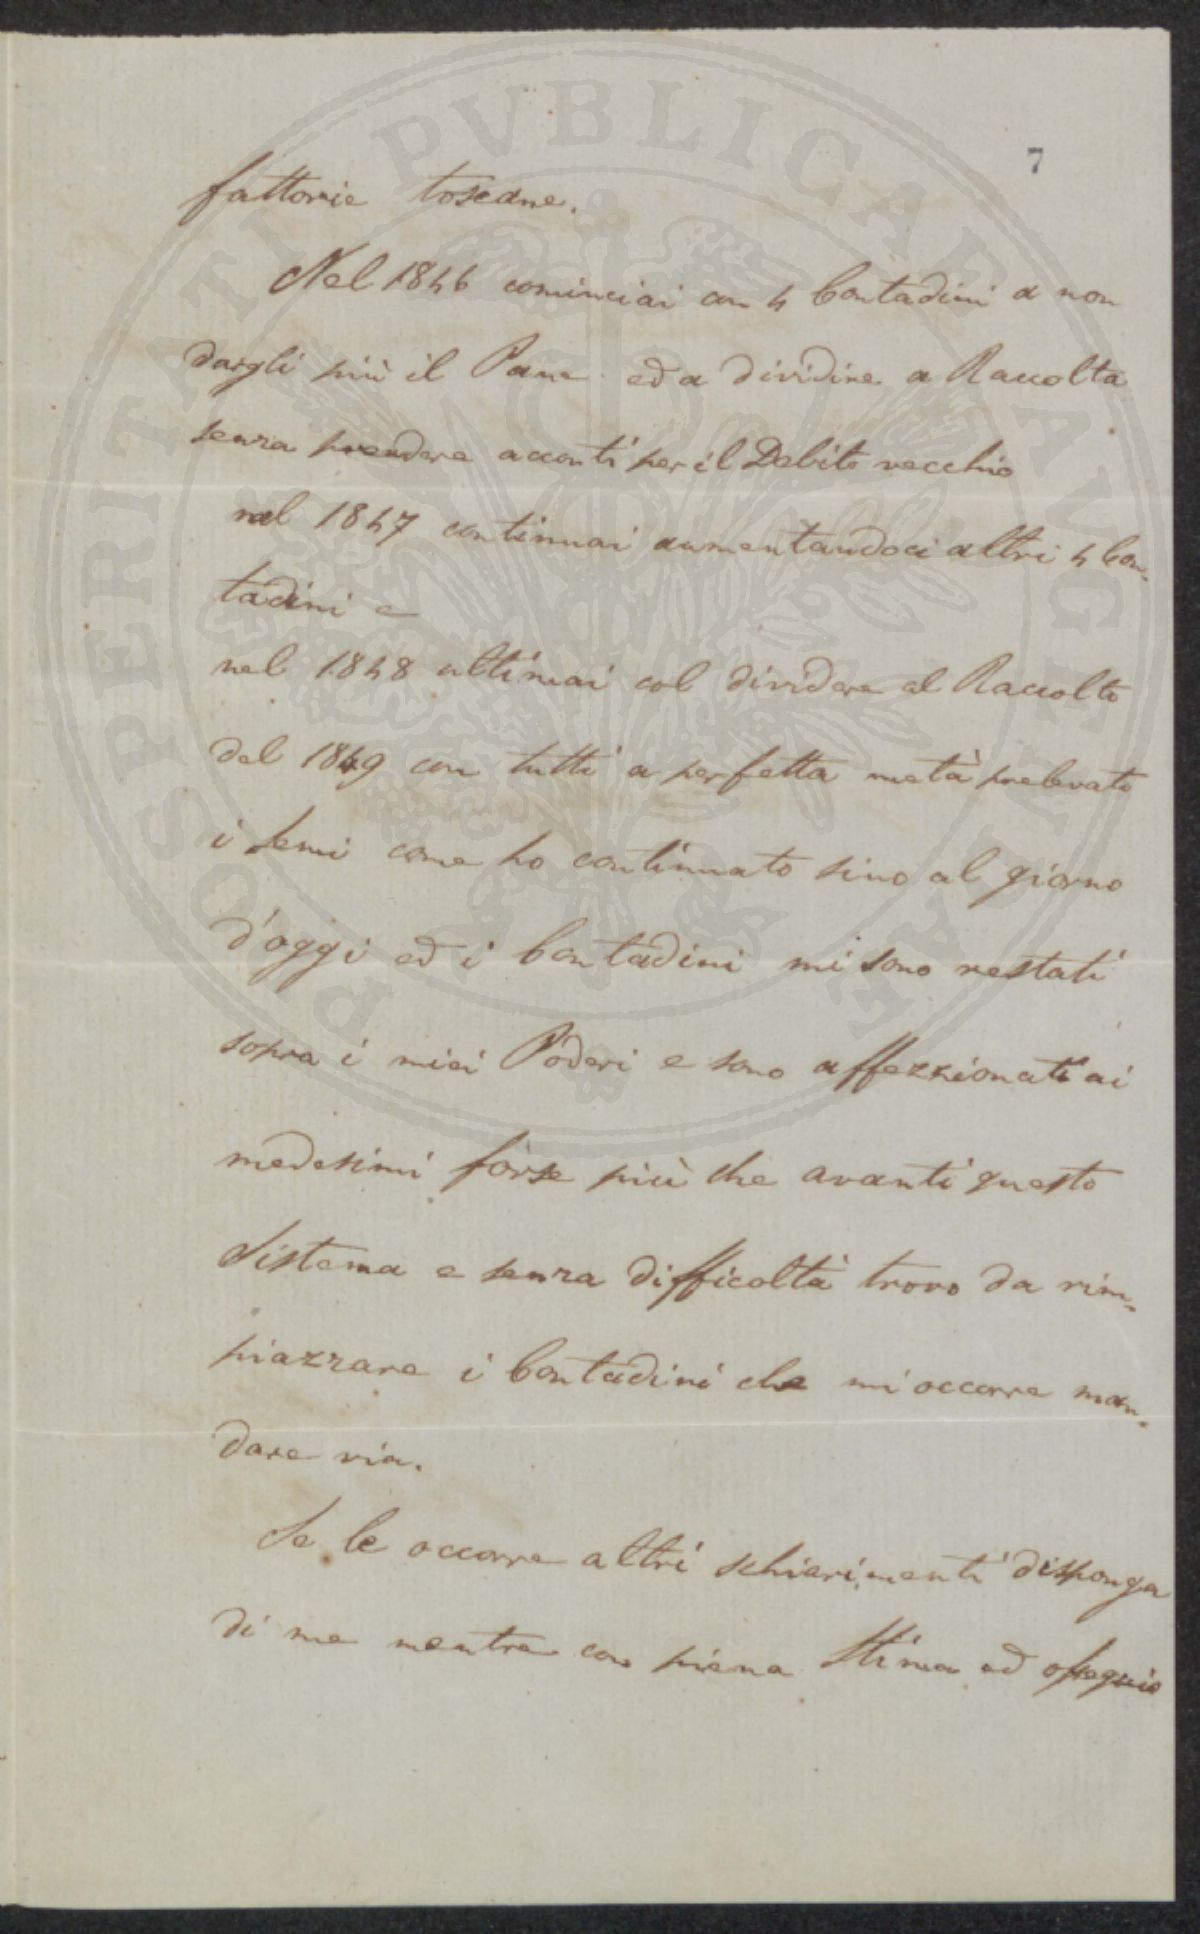 PROSPERITATI PVBLICAE AVGENDAE
7
fattorie toscane.
Nel 1846 cominciai con 4 Contadini a non
dargli più il Pane ed a dividire a Raccolta
senza prendere acconti per il Debito vecchio
nel 1847 continuai aumentandoci altri 4 Con-
tadini e
nel 1848 ultimai col dividere al Raccolto
del 1849 con tutti a perfetta metà prelevato
i Semi come ho continuato sino al giorno
d'oggi ed i Contadini mi sono restati
sopra i miei Poderi e sono affezzionati ai
medesimi forse più che avanti questo
Sistema e senza difficoltà trovo da rim-
piazzare i Contadini che mi occorre man-
dare via.
Se le occorre altri schiarimenti disponga
di me mentre con piena Stima ed ossequio